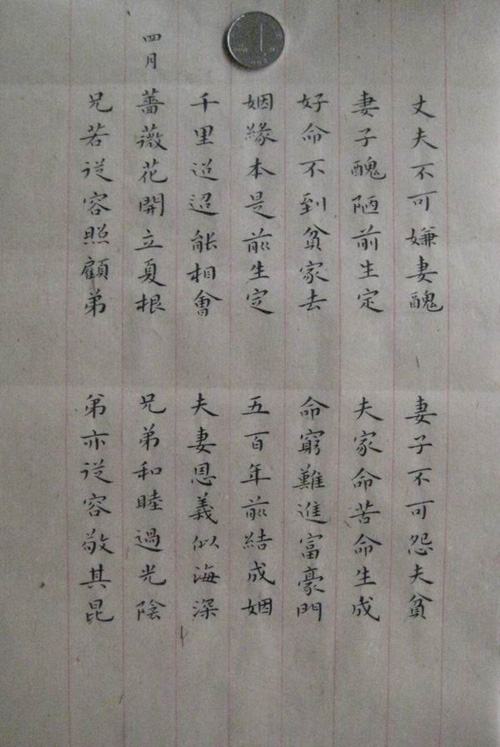 丈夫不可嫌妻醜 妻子不可怨夫貧
妻子醜陋前生定 夫家命苦命生成
好命不到貧家去 命窮難進富豪門
姻緣本是前生定 五百年前結成姻
千里迢迢能相會 夫妻恩義似海深
四月 薔薇花開立夏根 兄弟和睦過光陰
兄若從容照顧弟 弟亦從容敬其昆
1